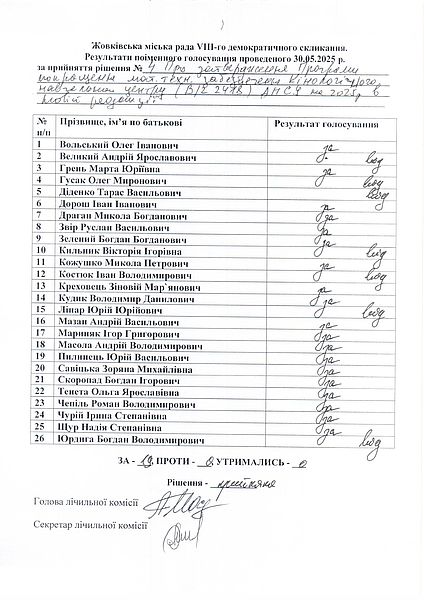 Жовківська міська рада VIII-го демократичного скликання.
Результати поіменного голосування проведеного 30.05.2025 р.
за прийняття рішення № 4 Про затвердження Програми
покращення мат. техн. забезпечення Кінологічного
навчального центру (В/Ч 2418) ДПСУ на 2025р. в
новій редакції
№ п/п Прізвище, ім’я по батькові Результат голосування
1 Вольський Олег Іванович за
2 Великий Андрій Ярославович від
3 Грень Марта Юріївна за
4 Гусак Олег Миронович від
5 Діденко Тарас Васильович від
6 Дорош Іван Іванович за
7 Драган Микола Богданович за
8 Звір Руслан Васильович за
9 Зелений Богдан Богданович за
10 Кильник Вікторія Ігорівна від
11 Кожушко Микола Петрович за
12 Костюк Іван Володимирович від
13 Креховець Зіновій Мар`янович за
14 Кудик Володимир Данилович за
15 Ліпар Юрій Юрійович від
16 Мазан Андрій Васильович за
17 Мариняк Ігор Григорович за
18 Масола Андрій Володимирович за
19 Пилипець Юрій Васильович за
20 Савіцька Зоряна Михайлівна за
21 Скоропад Богдан Ігорович за
22 Тенета Ольга Ярославівна за
23 Чепіль Роман Володимирович за
24 Чурій Ірина Степанівна за
25 Щур Надія Степанівна за
26 Юрдига Богдан Володимирович від
ЗА - 19 ПРОТИ - 0 УТРИМАЛИСЬ - 0
Рішення - прийнято
Голова лічильної комісії
Секретар лічильної комісії